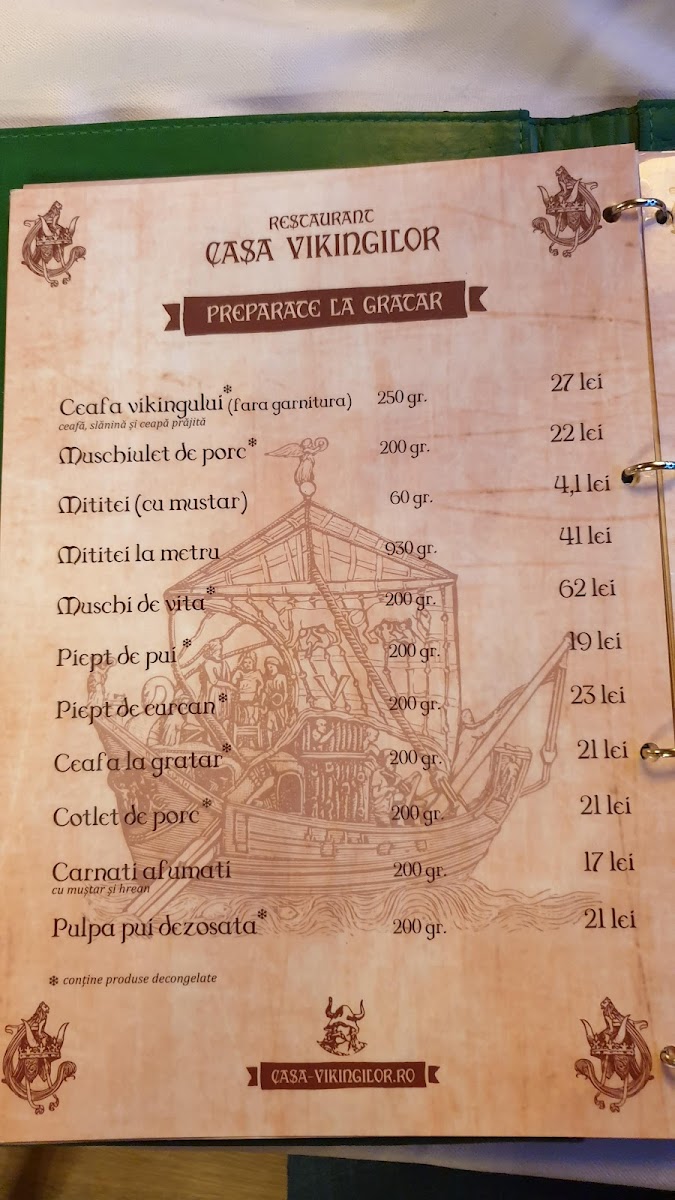 RESTAURANT
CASA VIKINGILOR
PREPARATE LA GRATAR
Ceafa vikingului* (fara garnitura) 250 gr. 27 lei
ceafă, slănină și ceapă prăjită
Muschiulet de porc* 200 gr. 22 lei
Mititei (cu mustar) 60 gr. 4,1 lei
Mititei la metru 930 gr. 41 lei
Muschi de vita* 200 gr. 62 lei
Piept de pui* 200 gr. 19 lei
Piept de curcan* 200 gr. 23 lei
Ceafa la gratar* 200 gr. 21 lei
Cotlet de porc* 200 gr. 21 lei
Carnati afumati 200 gr. 17 lei
cu muștar și hrean
Pulpa pui dezosata* 200 gr. 21 lei
* conține produse decongelate
CASA-VIKINGILOR.RO